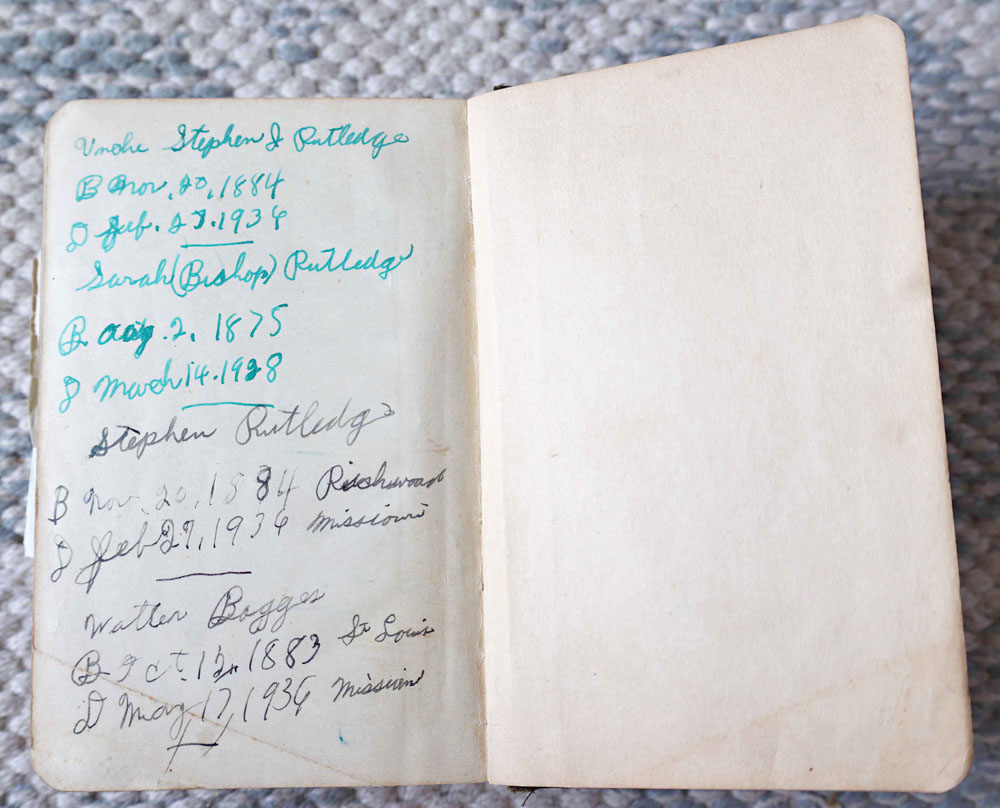 Stephen J Rutledge
B Nov. 20, 1884
D Feb. 27. 1936
Sarah (Bishop) Rutledge
B Aug. 2, 1875
D March 14. 1928
Stephen Rutledge
B Nov. 20, 1884 Richwood
D Feb 27, 1936 Missiouri
Walter Boggess
B Oct. 12, 1883 St Louis
D May 17, 1936 Missiouri